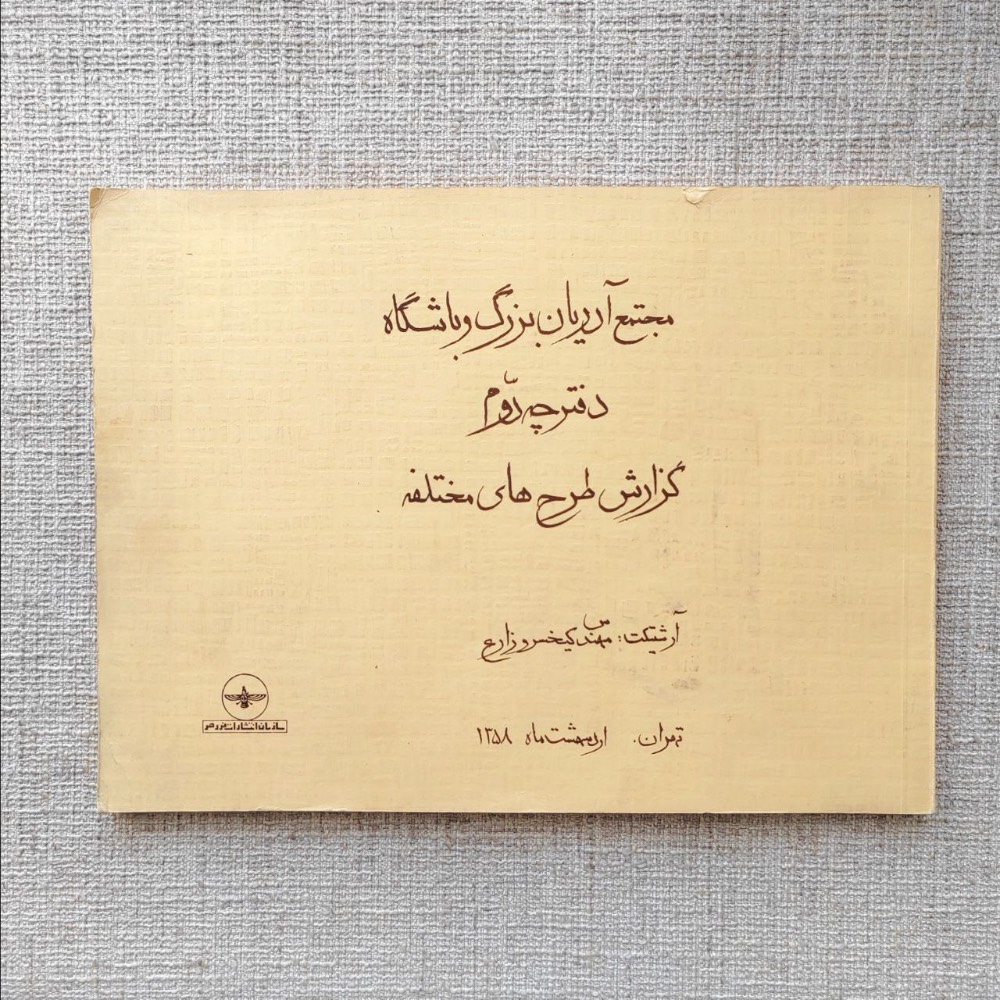 مجتمع آریان بزرگ و باشگاه
دفترچه دوّم
گزارش طرح های مختلفه
آرشیتکت: مهندس کیخسرو زارع
تهران. اردیبهشت ماه ۱۳۵۸
سازمان انتشارات فروهر